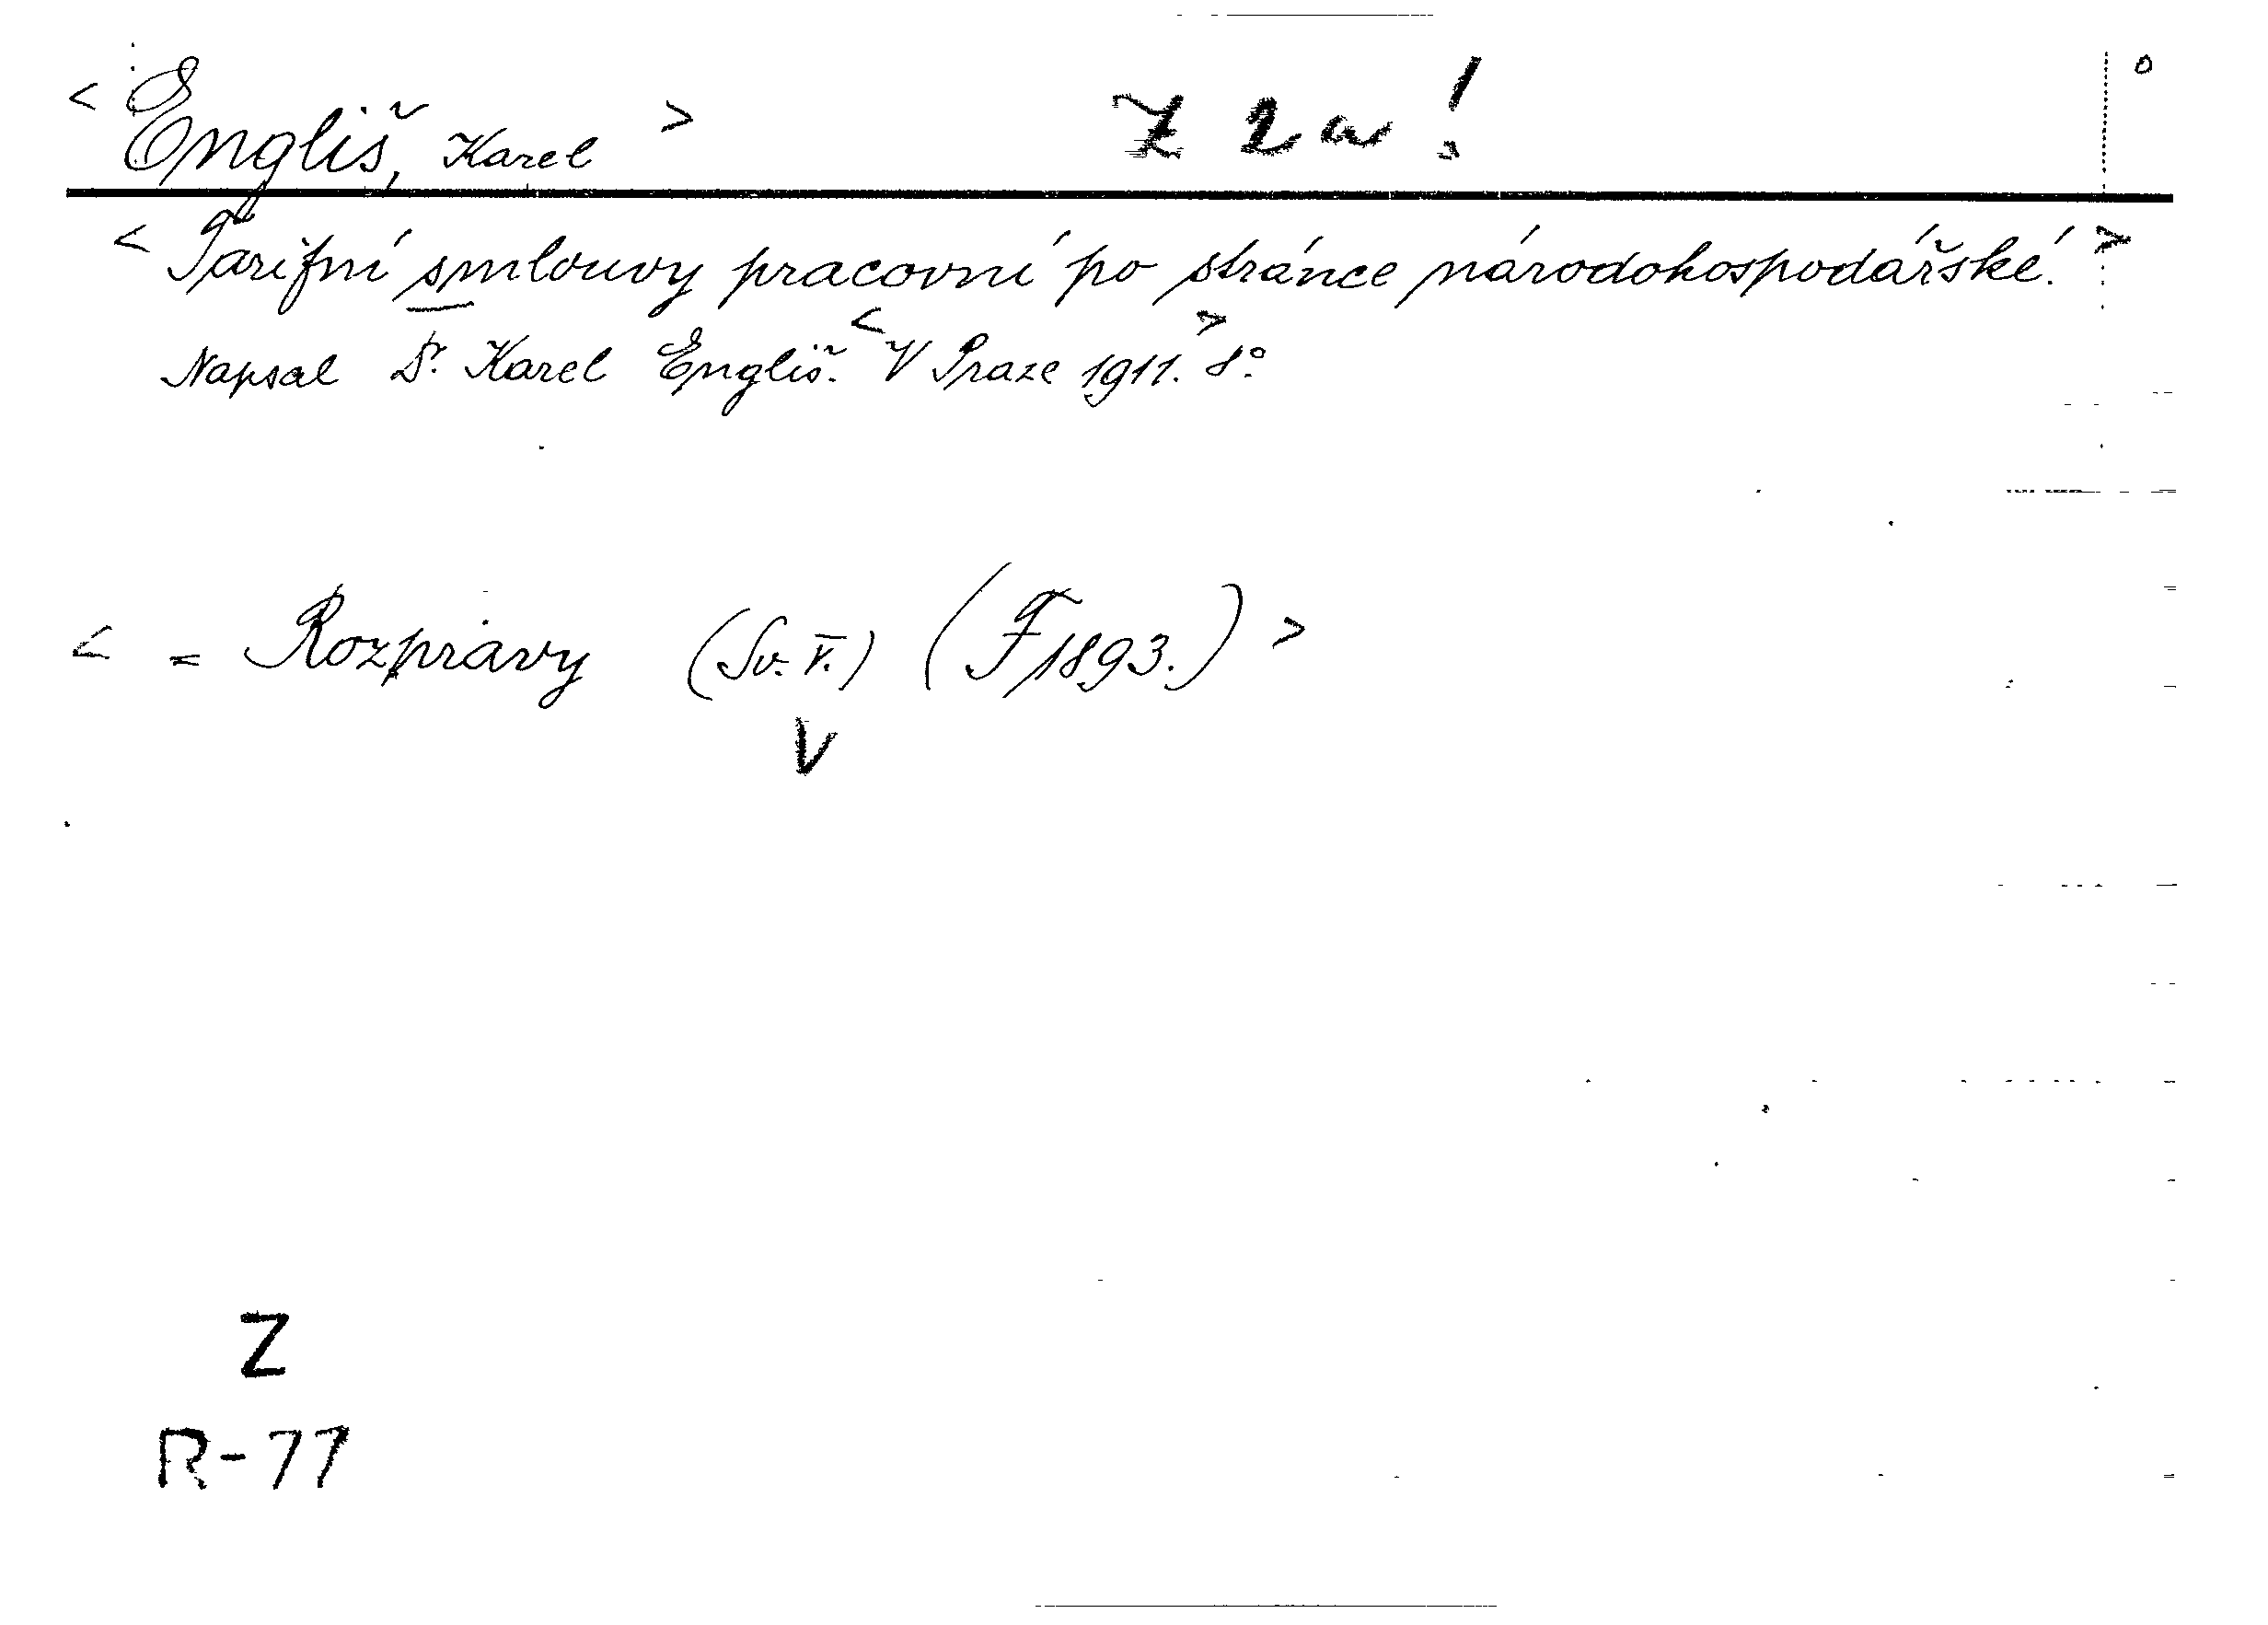 < Engliš, Karel > Z 2a!
< Tarifní smlouvy pracovní po stránce národohospodářské. >
Napsal Dr. Karel Engliš. < V Praze 1911. > 8°.
< = Rozpravy (Sv. V.) (F 1893.) >
V
Z
R-77